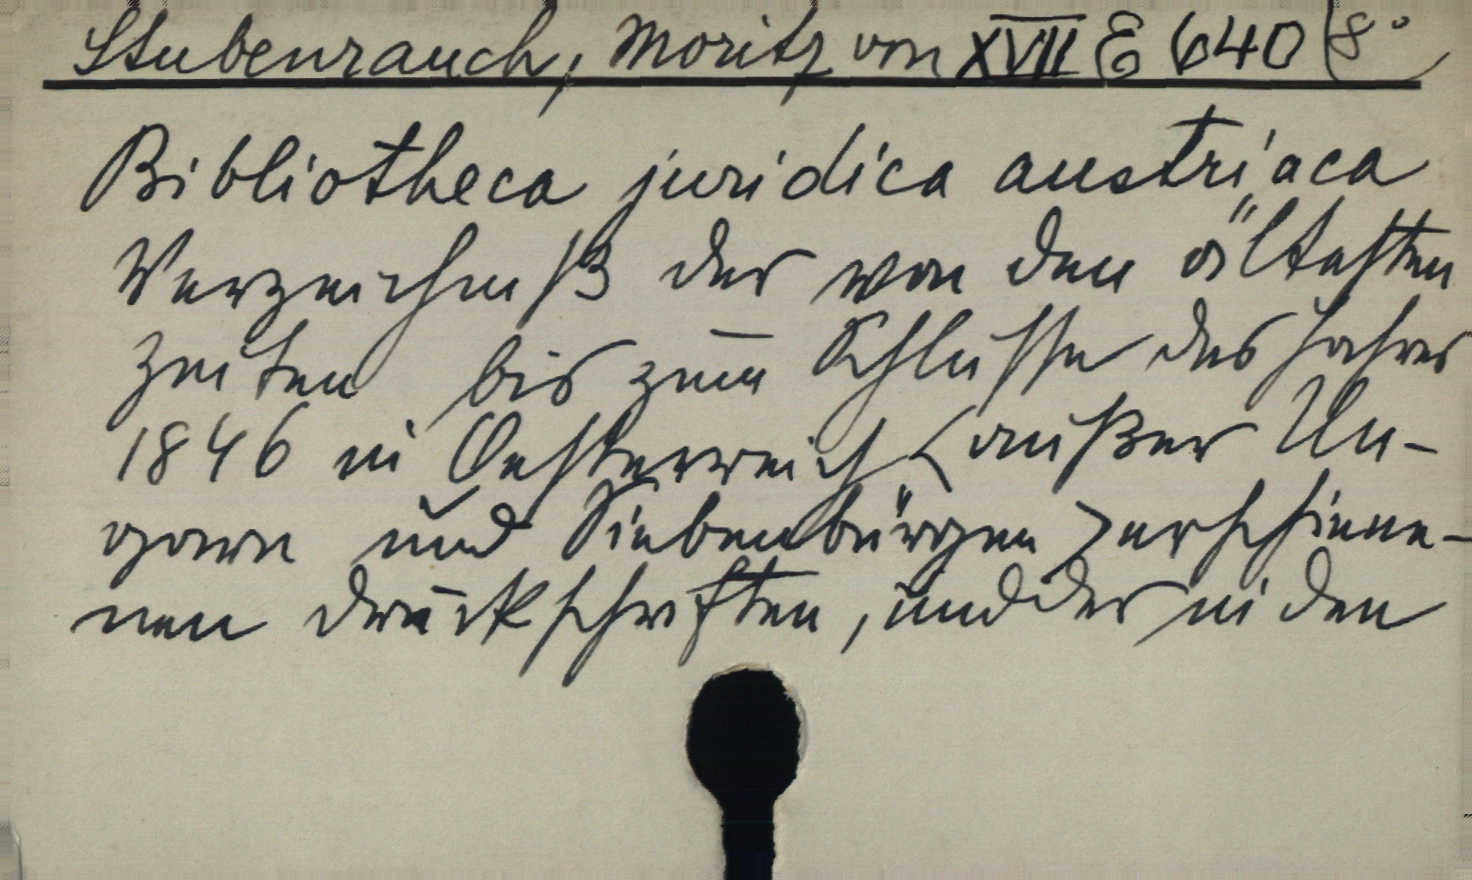 Stubenrauch, Moritz von XVII E 640 (8°
Bibliotheca juridica austriaca
Verzeichniß der von den ältesten
Zeiten bis zum Schlusse des Jahres
1846 in Oesterreich (außer Un-
garn und Siebenbürgen) erschiene-
nen Druckschriften, und der in den